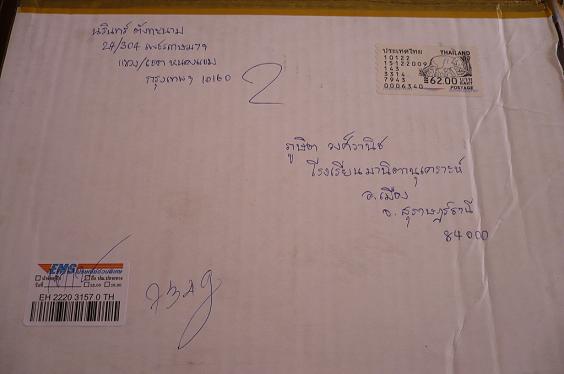 นรินทร์
24/304 เพชรเกษม 79
แขวง/เขต หนองแขม
กรุงเทพฯ 10160
2
ประเทศไทย THAILAND
10122
15122009
143
3314
7943
0006340
62.00 บาท BAHT
POSTAGE
ภูษิต วงศ์วานิช
โรงเรียนมานิตานุเคราะห์
อ.เมือง
จ.สุราษฎร์ธานี
84000
EMS ไปรษณีย์ด่วนพิเศษ
EH 2220 3157 0 TH